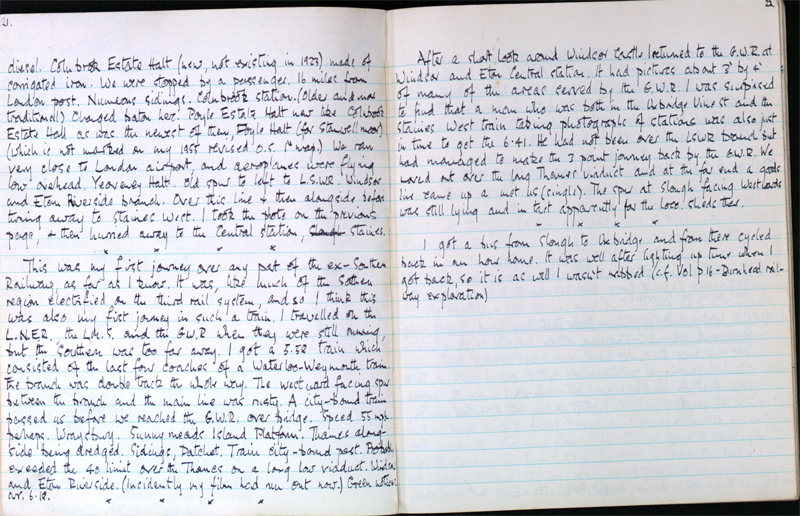 21.
diesel. Colnbrook Estate Halt (new, not existing in 1923) made of
corrigated iron. We were stopped by a passenger. 16 miles from
London post. Numerous sidings. Colnbrook station. (Older and more
traditional) Changed baton here. Poyle Estate Halt new like Colnbrook
Estate Halt as was the newest of them, Poyle Halt (for Stanwell moor)
(which is not marked on my 1955 revised O.S. 1" map.) We ran
very close to London airport, and aeroplanes were flying
low overhead. Yeoveney Halt. Old spur to left to L.S.W.R. Windsor
and Eton Riverside branch. Over this line & then alongside before
turning away to Staines West. I took the photo on the previous
page, & then hurried away to the Central station, Staines.
x x x x
This was my first journey over any part of the ex-Southern
Railway, as far as I know. It was, like much of the Sothern
region electrified on the third rail system, and so I think this
was also my first jorney in such a train. I travelled on the
L.N.E.R., the L.M.S. and the G.W.R when they were still running,
but the Southern was too far away. I got a 5.58 train which
consisted of the last four coaches of a Waterloo-Weymouth train.
The branch was double track the whole way. The westward facing spur
between the branch and the main line was rusty. A city-bound train
passed us before we reached the G.W.R. over bridge. Speed 55 mph
perhaps. Wraysbury. Sunnymeads Island Platform. Thames along-
side being dredged. Sidings, Datchet. Train city-bound past. Probably
exceeded the 40 limit over the Thames on a long low viaduct. Windsor
and Eton Riverside. (Incidently my film had run out now.) Green
arr. 6.18.
x x x x
22
After a short look around Windsor Castle I returned to the G.W.R at
Windsor and Eton Central station. It had pictures about 3' by 4'
of many of the areas served by the G.W.R. I was surprised
to find that a man who was both in the Uxbridge Vine St and the
Staines West train taking photographs of stations was also just
in time to get the 6.41. He had not been over the LSWR branch but
had managed to make the 3 point journey back by the G.W.R. We
moved out over the long Thames viaduct and at the far end a goods
line came up to met us (single). The spur at Slough facing Westwards
was still lying and in tact apparently for the loco. sheds there.
x x x
I got a bus from Slough to Uxbridge and from there cycled
back in an hour home. It was well after lighting up time when I
got back, so it is as well I wasn't nabbed (c.f. Vol p16 - Burnhead rail-
way exploration)